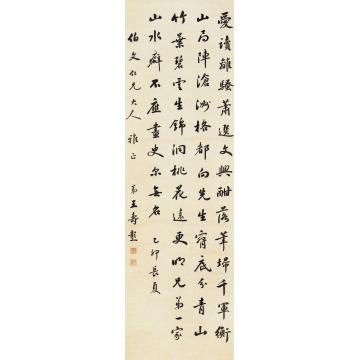 愛讀離騷蕭選文興酣落筆埽千軍衡
山局陣滄洲格都向先生窗底分青山
竹葉碧雲生錦洞桃花遠更明兄弟一家
山水癖不應畫史尔無名 乙卯長夏
伯文仁兄大人雅正 弟王壽彭